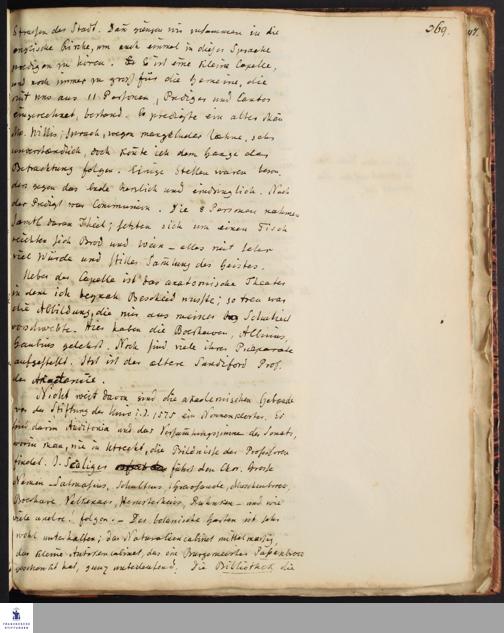 369.
Strassen der Stadt. Dañ giengen wir zusammen in die
englische Kirche, um auch einmal in dieser Sprache
predigen zu hören. Es ist eine kleine Capelle,
und noch immer zu gross für die Gemeine, die
mit uns aus 11 Personen, Prediger und Cantor
eingerechnet, bestand. Es predigte ein alter Mañ
Mr. Willis, sprach, wegen mangelnder Zæhne, sehr
unverstændlich, doch koñte ich dem Gange der
Betrachtung folgen. Einige Stellen waren beson
ders gegen das Ende herzlich und eindringlich. Nach
der Predigt war Communion. Die 8 Personen nahmen
sæmtl. daran Theil; setzten sich um einen Tisch
reichten sich Brod und Wein – alles mit sehr
viel Würde und stiller Sam̃lung des Geistes.
Ueber der Capelle ist das anatomische Theater
in dem ich Bescheid wusste; so treu war
die Abbildung, die mir aus meiner Schulzeit
vorschwebte. Hier haben die Boerhaven, Albinus,
Gaubius gelehrt. Noch sind viele ihrer Præparate
aufgestellt. Itzt ist der altere Sandiford Prof.
der Anatomie.
Nicht weit davon sind die akademischen Gebæude
vor der Stiftung der Univ. i. J. 1575 ein Nonnenkloster. Es
sind darin Auditoria und das Versam̃lungszimmer des Senats,
worin man, wie in Utrecht, die Bildnisse der Professoren
findet. J. Scaliger führt den Chor. Grosse
Namen – Salmasius, Schultens, Gravesande, Muschenbroec,
Boerhave, Valkenaer, Hemsterhuis, Ruhnken – und wie
viele andre. folgen. – Der botanische Garten ist sehr
wohl unterhalten; das Naturaliencabinet mittelmæssig,
das kleine Antikencabinet, das ein Burgemeester Papenbroec
geschenkt hat, ganz unbedeutend. Die Bibliothek, die
FRANCKESCHE
STIFTUNGEN